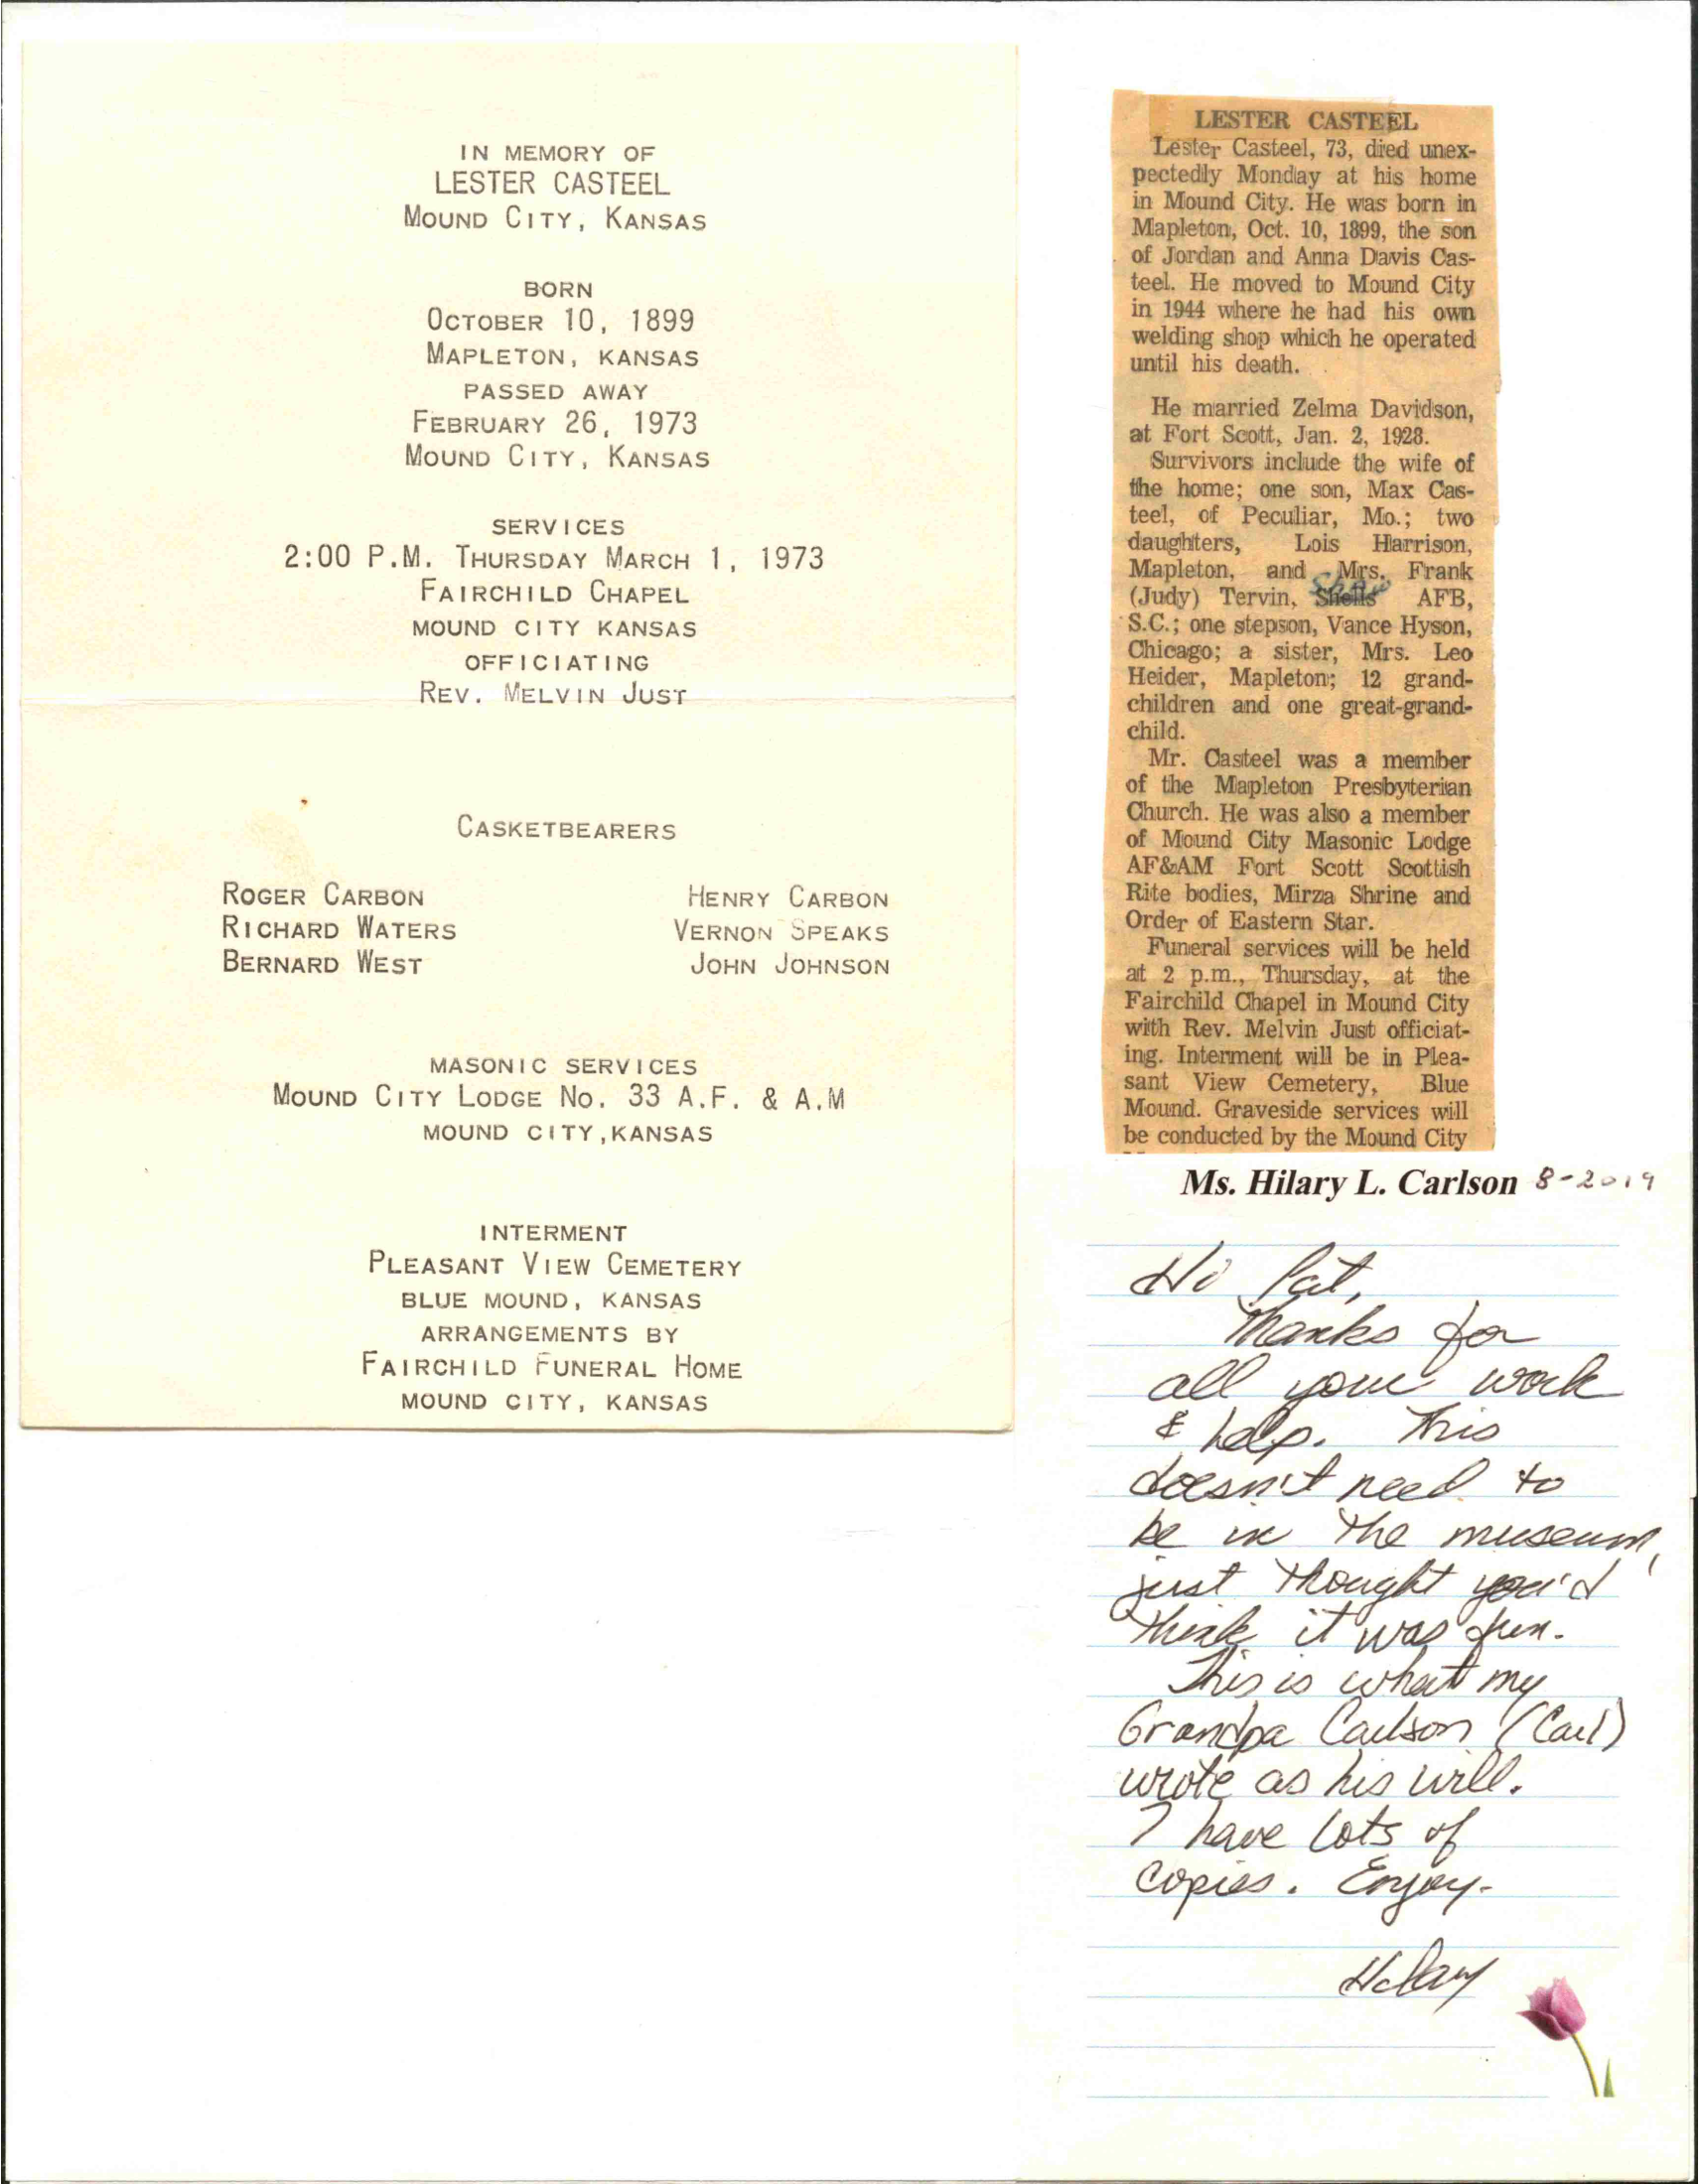 IN MEMORY OF
LESTER CASTEEL
MOUND CITY, KANSAS
BORN
OCTOBER 10, 1899
MAPLETON, KANSAS
PASSED AWAY
FEBRUARY 26, 1973
MOUND CITY, KANSAS
SERVICES
2:00 P.M. THURSDAY MARCH 1, 1973
FAIRCHILD CHAPEL
MOUND CITY KANSAS
OFFICIATING
REV. MELVIN JUST
CASKETBEARERS
ROGER CARBON HENRY CARBON
RICHARD WATERS VERNON SPEAKS
BERNARD WEST JOHN JOHNSON
MASONIC SERVICES
MOUND CITY LODGE NO. 33 A.F. & A.M
MOUND CITY, KANSAS
INTERMENT
PLEASANT VIEW CEMETERY
BLUE MOUND, KANSAS
ARRANGEMENTS BY
FAIRCHILD FUNERAL HOME
MOUND CITY, KANSAS
LESTER CASTEEL
Lester Casteel, 73, died unex-
pectedly Monday at his home
in Mound City. He was born in
Mapleton, Oct. 10, 1899, the son
of Jordan and Anna Davis Cas-
teel. He moved to Mound City
in 1944 where he had his own
welding shop which he operated
until his death.
He married Zelma Davidson,
at Fort Scott, Jan. 2, 1928.
Survivors include the wife of
the home; one son, Max Cas-
teel, of Peculiar, Mo.; two
daughters, Lois Harrison,
Mapleton, and Mrs. Frank
(Judy) Tervin, Shells AFB,
S.C.; one stepson, Vance Hyson,
Chicago; a sister, Mrs. Leo
Heider, Mapleton; 12 grand-
children and one great-grand-
child.
Mr. Casteel was a member
of the Mapleton Presbyterian
Church. He was also a member
of Mound City Masonic Lodge
AF&AM Fort Scott Scottish
Rite bodies, Mirza Shrine and
Order of Eastern Star.
Funeral services will be held
at 2 p.m., Thursday, at the
Fairchild Chapel in Mound City
with Rev. Melvin Just officiat-
ing. Interment will be in Plea-
sant View Cemetery, Blue
Mound. Graveside services will
be conducted by the Mound City
Ms. Hilary L. Carlson 8-2019
Hi Pat,
Thanks for
all your work
& help. This
doesn't need to
be in the museum,
just thought you'd
think it was fun.
This is what my
Grandpa Carlson (Carl)
wrote as his will.
I have lots of
copies. Enjoy-
Hilary